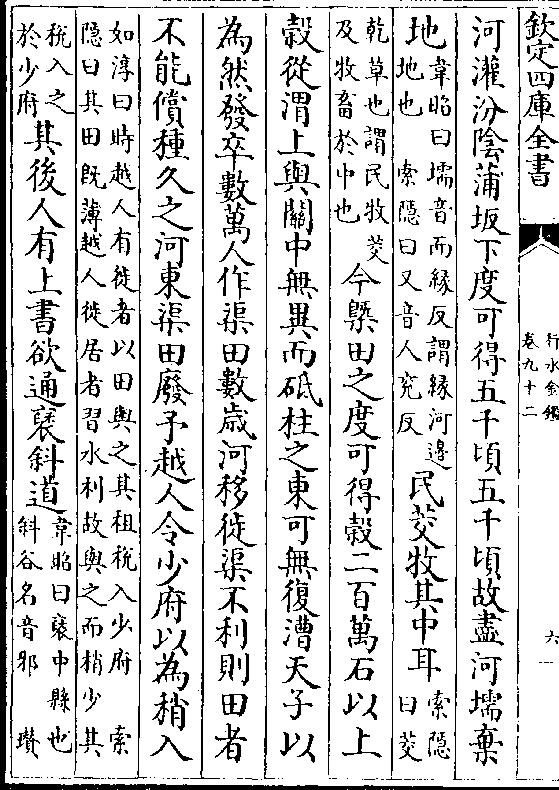 欽定四庫全書
行水金鑑
卷九十二
六
河灌汾陰蒲坂下度可得五千頃五千頃故盡河壖棄
地韋昭曰壖音而緣反謂緣河邊地也 索隱曰又音人兖反民茭牧其中耳索隱曰茭
乾草也謂民牧茭及牧畜於中也今槩田之度可得榖二百萬石以上
榖從渭上與關中無異而砥柱之東可無復漕天子以
為然發卒數萬人作渠田數歲河移徙渠不利則田者
不能償種久之河東渠田廢予越人令少府以為稍入
如淳曰時越人有徙者以田與之其租稅入少府 索隱曰其田既薄越人徙居者習水利故與之而稍少其
稅入之於少府其後人有上書欲通襃斜道韋昭曰襃中縣也斜谷名音邪 瓚